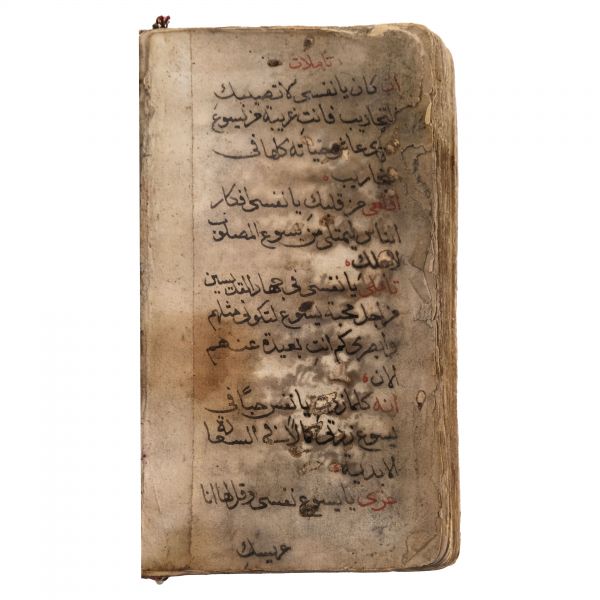 تاملات
ان كان يا نفسي لا تصيبك
التجاريب فانت غريبة من يسوع
الذي عاش حياته كلها في
التجاريب
اقلعي من قلبك يا نفسي افكار
الناس ليمتلي من يسوع المصلوب
لاجلك
تاملي يا نفسي في جهاد القديسين
من اجل محبة يسوع لتكوني مثلهم
وابصري كم انت بعيدة عنهم
الان
انه كلما زدت يا نفس حبًا في
يسوع زدتي كمالا في السعادة
الابدية
عزي يا يسوع نفسي وقل لها انا
عريسك